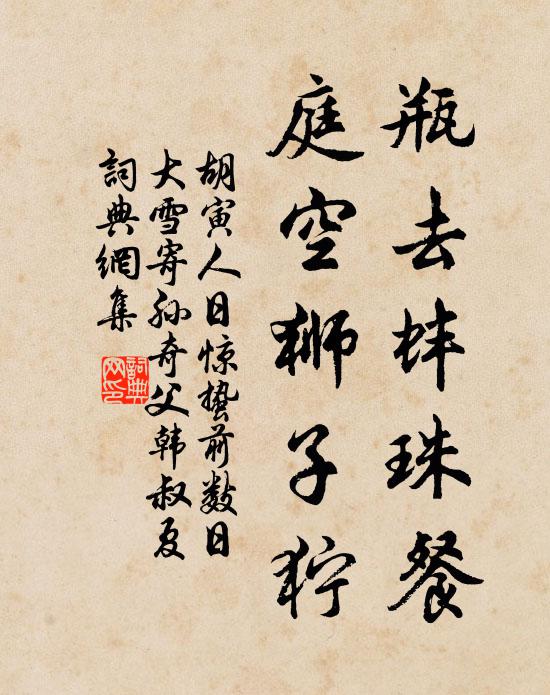 瓶去蚌珠餐
庭空狮子狞
胡寅人日惊蛰前数日
大雪寄孙奇父韩叔夏
词典網集
詞典网印